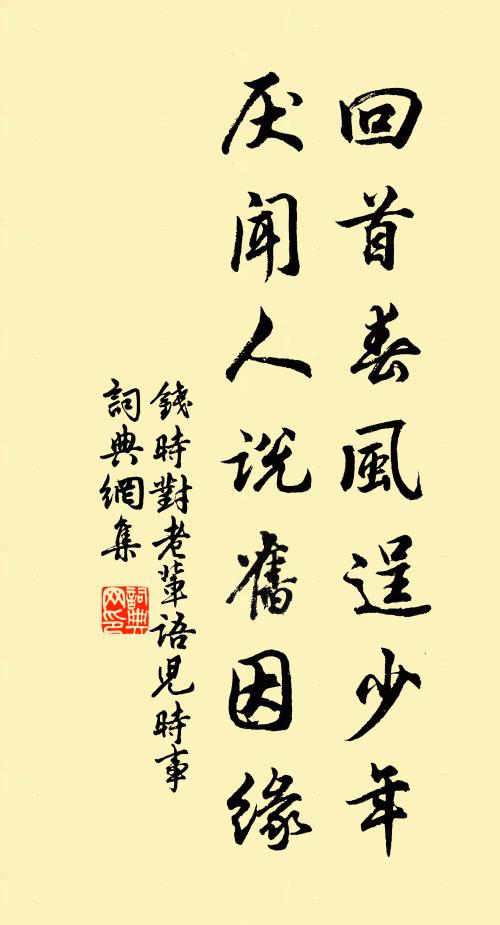 回首春風逞少年
厌聞人説舊因緣
錢時對老輩語兒時事
詞典網集
詞典网印